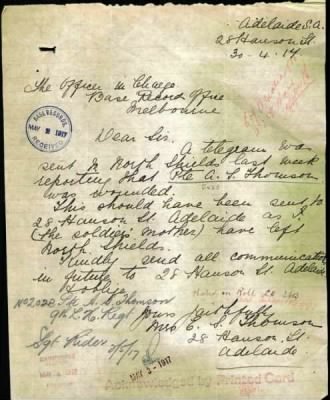 Adelaide S.A.
28 Hanson St.
30-4-17
The Officer in Charge
Base Record Office
Melbourne
BASE RECORDS
MAY 2 1917
RECEIVED
Dear Sir.
A telegram was
sent to North Shields last week
reporting that Pte A. S. Thomson
was wounded.
This should have been sent to
28 Hanson St. Adelaide as I
(the soldier's mother) have left
North Shields.
Kindly send all communications
in future to 28 Hanson St. Adelaide
& oblige
Yours faithfully
Mrs C. S. Thomson
28 Hanson St.
Adelaide
A. S. Thomson
9th L.H. Regt
Sgt
2/5/17
MAY 3 - 1917
Acknowledged by Printed Card